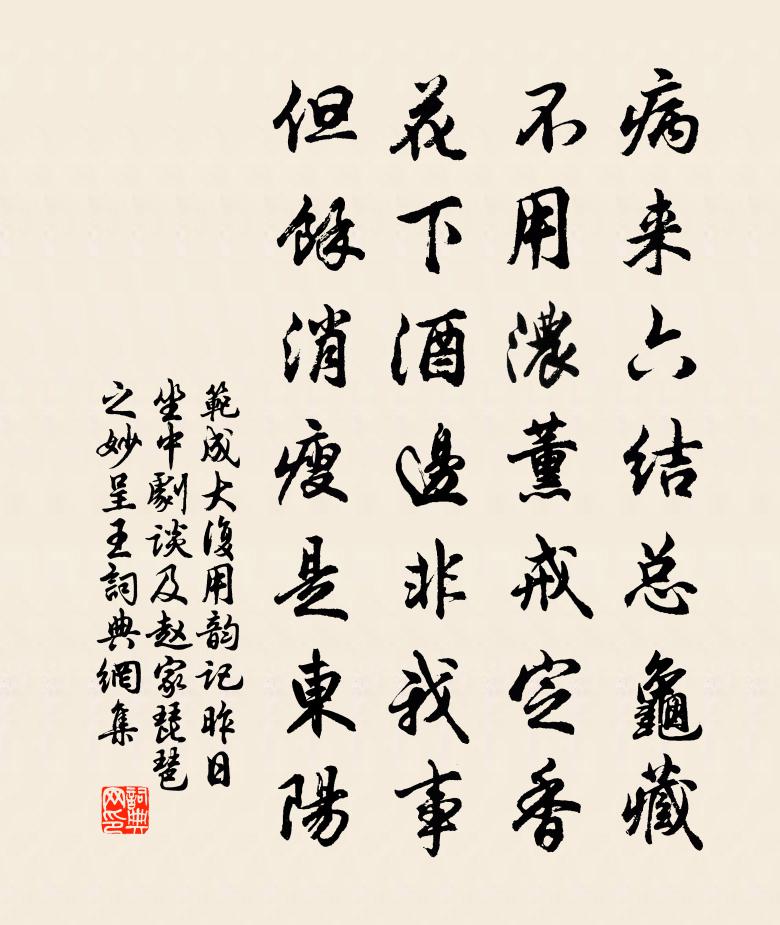 病来六结总龜藏
不用濃薰戒定香
花下酒邊非我事
但餘消瘦是東陽
範成大復用韵记昨日
坐中劇谈及赵家琵琶
之妙呈王詞典網集
詞典
网印